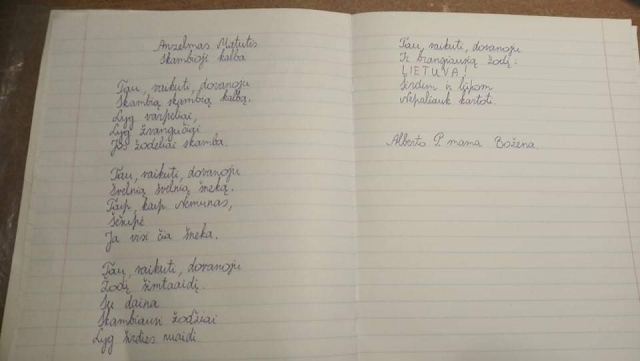 Anzelmas Matutis
Skambioji kalba
Tau, vaikuti, dovanoju
Skambią skambią kalbą.
Lyg varpeliai,
Lyg žvangučiai
Jos žodeliai skamba.
Tau, vaikuti, dovanoju
Švelnią švelnią šneką.
Taip, kaip Nemunas,
Šešupė
Ja visi čia šneka.
Tau, vaikuti, dovanoju
Žodį šimtaaidį.
Su daina
Skambiausi žodžiai
Lyg širdies nuaidi
Tau, vaikuti, dovanoju
Ir brangiausią žodį:
LIETUVA!
Širdim ir lūpom
Nepaliauk kartoti.
Alberto P. mama Božena.